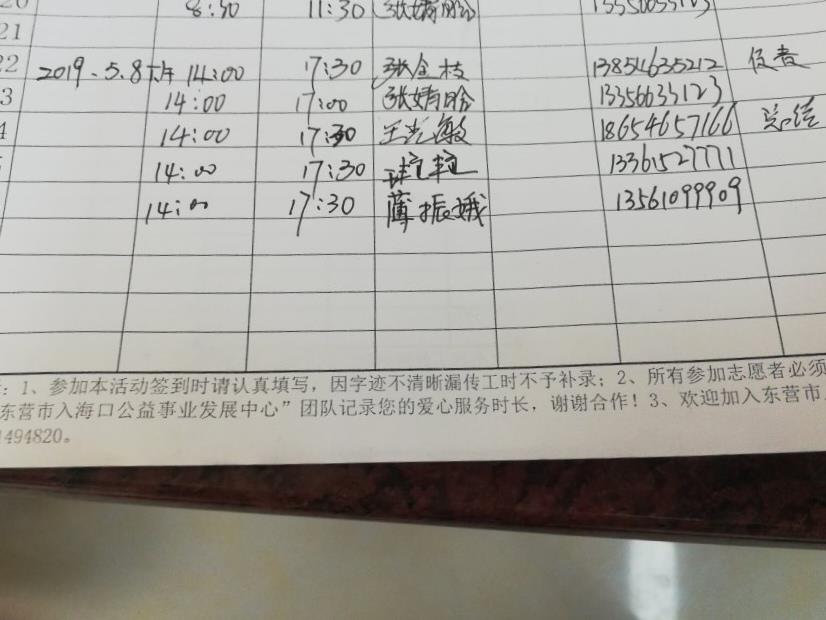 20 8:30 11:30 张婧昤 13356633123
21
22 2019.5.8下午 14:00 17:30 张金枝 13854635212
3 14:00 17:00 张婧昤 13356633123
4 14:00 17:30 王光敏 18654657166 总结
14:00 17:30 13361527771
14:00 17:30 薄振娥 13561099909
:1、参加本活动签到时请认真填写,因字迹不清晰漏传工时不予补录;2、所有参加志愿者必须
东营市入海口公益事业发展中心”团队记录您的爱心服务时长,谢谢合作!3、欢迎加入东营市
1494820。